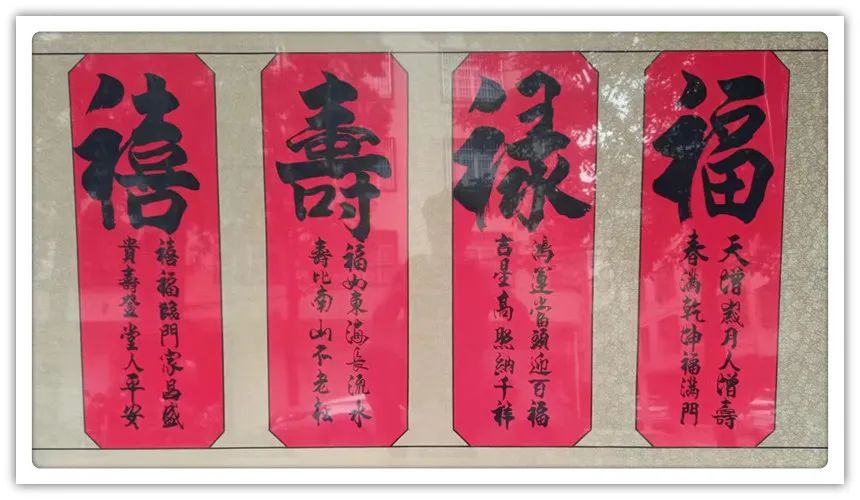 福
天增歲月人增壽
春滿乾坤福滿門
禄
鴻運當頭迎百福
吉星高照納千祥
壽
福如東海長流水
壽比南山不老松
禧
禧福臨門家昌盛
貴壽登堂人平安